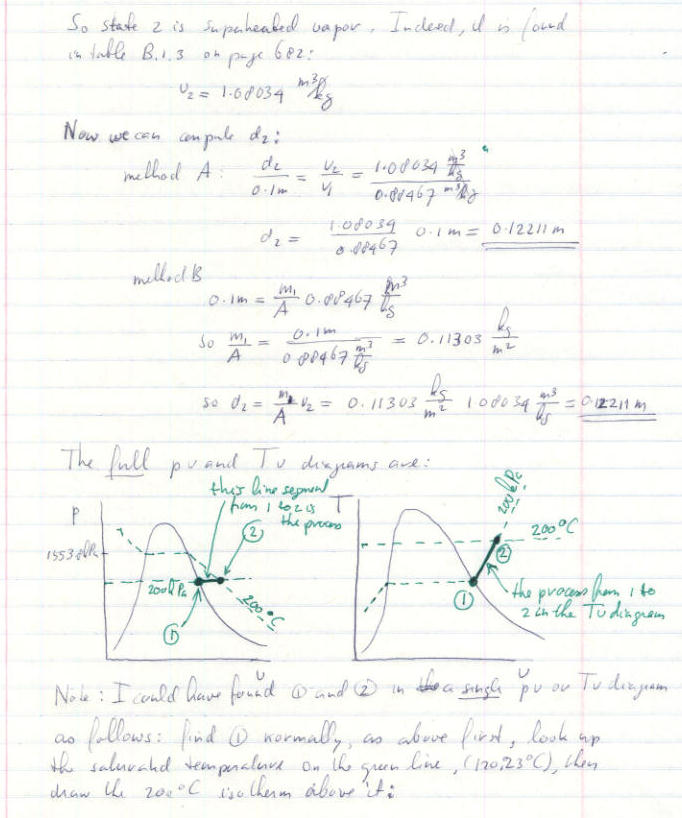 So state 2 is superheated vapor. Indeed, it is found
in table B.1.3 on page 682:
v₂ = 1.08034 m³/kg
Now we can compute d₂:
method A: d₂/0.1m = v₂/v₁ = 1.08034 m³/kg / 0.88467 m³/kg
d₂ = 1.08034/0.88467 0.1 m = 0.12211 m
method B
0.1m = m₁/A 0.88467 m³/kg
so m₁/A = 0.1m / 0.88467 m³/kg = 0.11303 kg/m²
so d₂ = m/A v₂ = 0.11303 kg/m² 1.08034 m³/kg = 0.12211 m
The full pv and Tv diagrams are:
this line segment
from 1 to 2 is
the process
p
②
1553.8kPa
200kPa
200°C
①
v
T
200kPa
200°C
②
①
the process from 1 to
2 in the Tv diagram
v
Note: I could have found ① and ② in a single pv or Tv diagram
as follows: find ① normally, as above first, look up
the saturated temperature on the green line, (120.23°C), then
draw the 200°C isotherm above it: